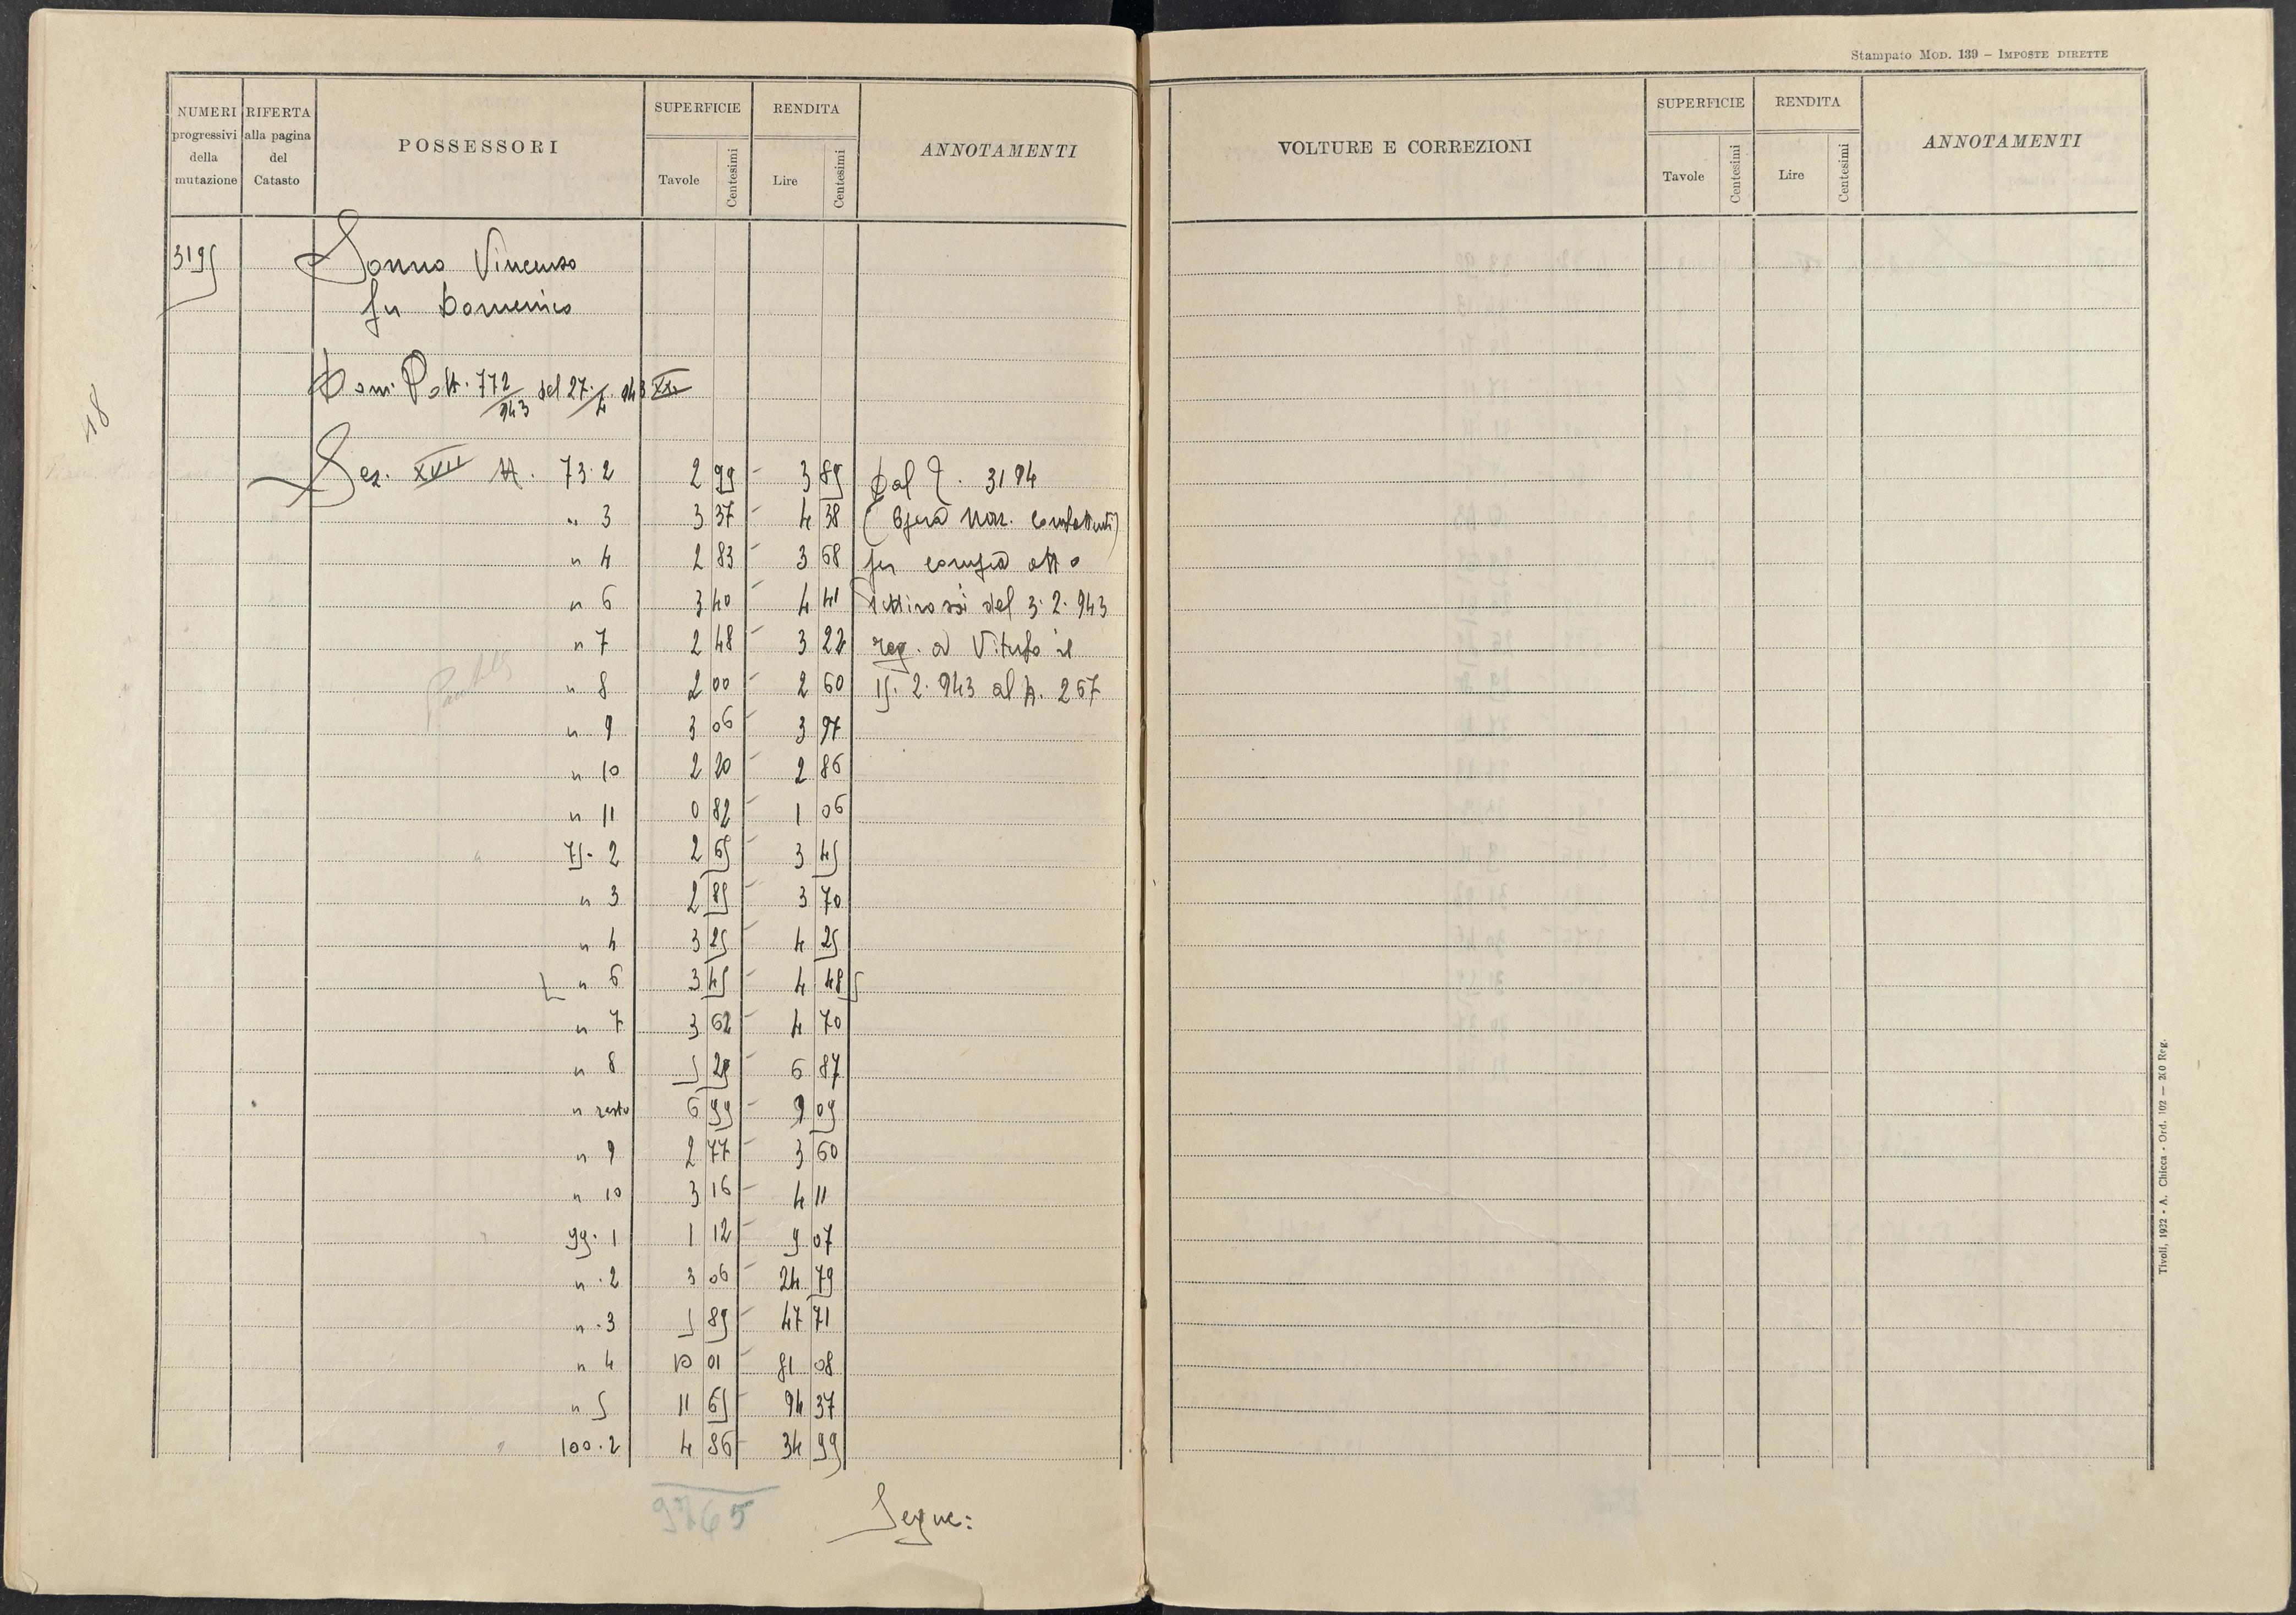 Stampato Mod. 139 – Imposte dirette
NUMERI progressivi della mutazione
RIFERTA alla pagina del Catasto
POSSESSORI
SUPERFICIE
Tavole Centesimi
RENDITA
Lire Centesimi
ANNOTAMENTI
VOLTURE E CORREZIONI
SUPERFICIE
Tavole Centesimi
RENDITA
Lire Centesimi
ANNOTAMENTI
3195 Sonno Vincenzo
fu Domenico
Dom. Volt. 772/943 del 27/4 943 XXI
18
Sez. XVII N. 73·2 2 99 3 89 Dal N. 3194
" 3 3 37 4 38 (Opera Naz. Combattenti)
" 4 2 83 3 68 per compra atto
" 6 3 40 4 41 del 3·2·943
" 7 2 48 3 22 reg. a Viterbo il
" 8 2 00 2 60 15·2·943 al N. 267
" 9 3 06 3 97
" 10 2 20 2 86
" 11 0 82 1 06
75·2 2 65 3 45
" 3 2 85 3 70
" 4 3 25 4 25
" 6 3 45 4 485
" 7 3 62 4 70
" 8 5 29 6 87
" resto 6 99 9 09
" 9 2 77 3 60
" 10 3 16 4 11
99·1 1 12 9 07
" ·2 3 06 24 79
" ·3 5 89 47 71
" 4 10 01 81 08
" 5 11 65 94 37
100·2 4 86 34 99
9765
Segue:
Tivoli, 1932 - A. Chicca - Ord. 102 — 200 Reg.